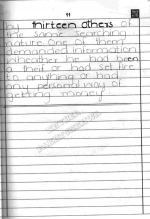 11
by thirteen others of
the same searching
nature. One of them
demanded information
wheather he had been
a theif or had set fire
to anything or had
any personal way of
getting money